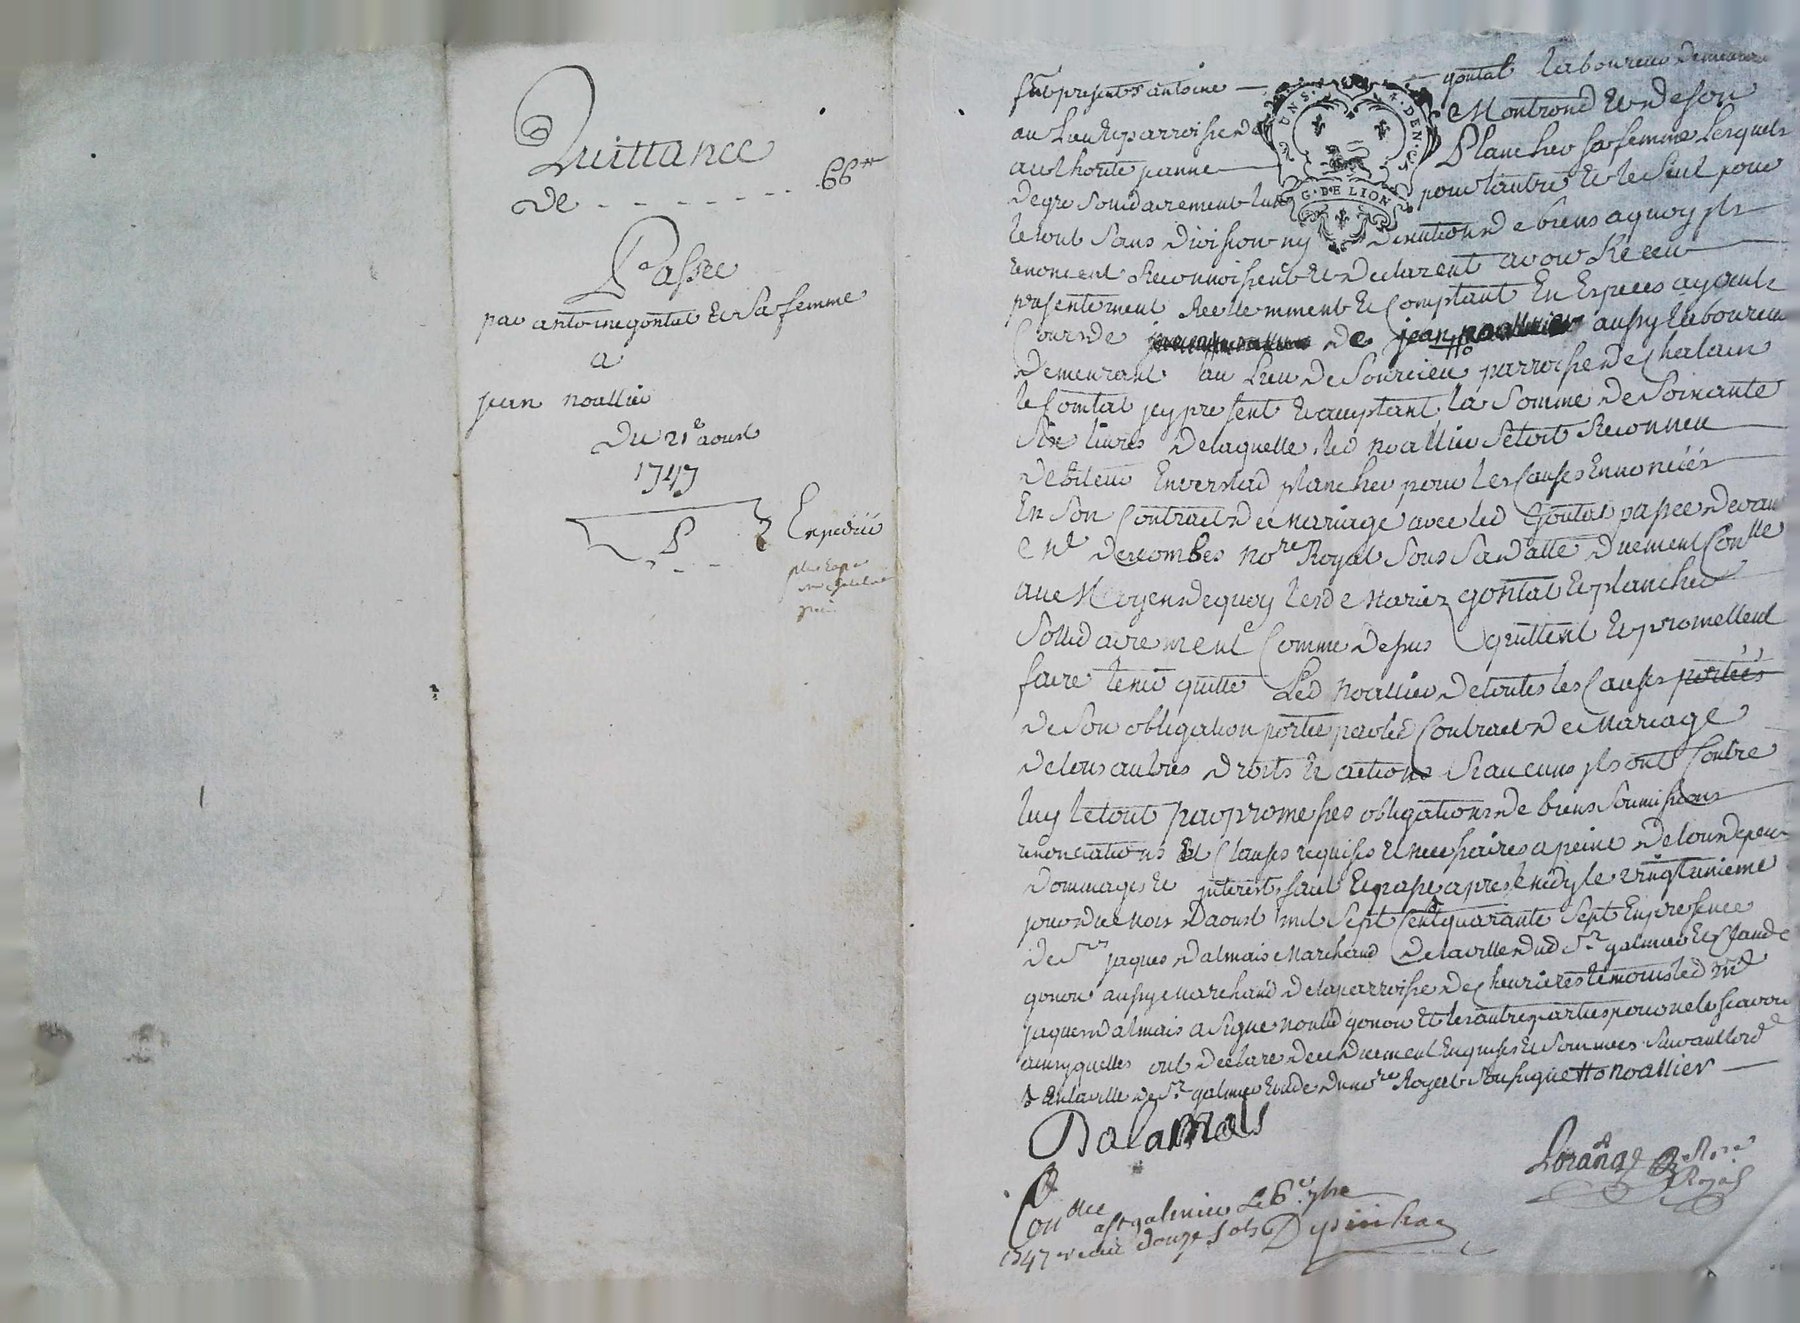 Quittance
de - - - - - - - 66ₜₜ
Passée
par antoine gontal et Sa femme
a
jean noallier
Du 21e aoust
1747
P
Expediée
fut present antoine gontal laboureur demeurant
au Lieu et parroisse de Montrond et de son
authorité janne Plancher sa femme lesquels
de gré Solidairement l'un pour l'autre et le Seul pour
le tout Sans division ny de biens a quoy ils
renoncent Reconnoissent et declarent avoir Receu
presentement Reellemment et Comptant En Especes ayants
Cours de de jean noallier aussy laboureur
demeurant au Lieu de Sourcieu parroisse de Chalain
le Comtal jcy present et acceptant la Somme de Soixante
Six livres de laquelle led noallier Setoit Reconneu
debiteur Envers lad plancher pour les Causes Ennoncées
En Son Contract de Mariage avec led Gontal passée devant
descombes nore Royal Sous Sa datte duement Conllé
aue Moyen de quoy lesd Mariez gontal et plancher
Sollidairement Comme desus quittent et promettent
faire tenir quitte Led noallier de toutes les Causes portées
de Son obligation portée par led Contract de Mariage
de tous autres droits et actions Si aucuns jls ont Contre
luy le tout par promesses obligations de biens Soumissions
renonciations et Clauses requises et necessaires a peine de tous depens
dommages et interests fait et passé apres midy le vingtunieme
jour du Mois Daoust mil Sept Cent quarante Sept En presence
de Sr jaques dalmais Marchand de la ville dud St galmier et Claude
gonon aussy Marchand de la parroisse de Chevrieres temoins led
jaques dalmais a Signé non led gonon et les autres parties pour ne le scavoir
ainsy quelles ont declaré de ce duement Enquises et Sommées Suivant lord
a la ville de St galmier Etude du nore Royal Soussigné tto noallier
UNS. DEN.
G. DE LION
Dalamais
Lorange Nore
Royal
Conllé a St galmier Le 6e 7bre
1747 receu douze sols